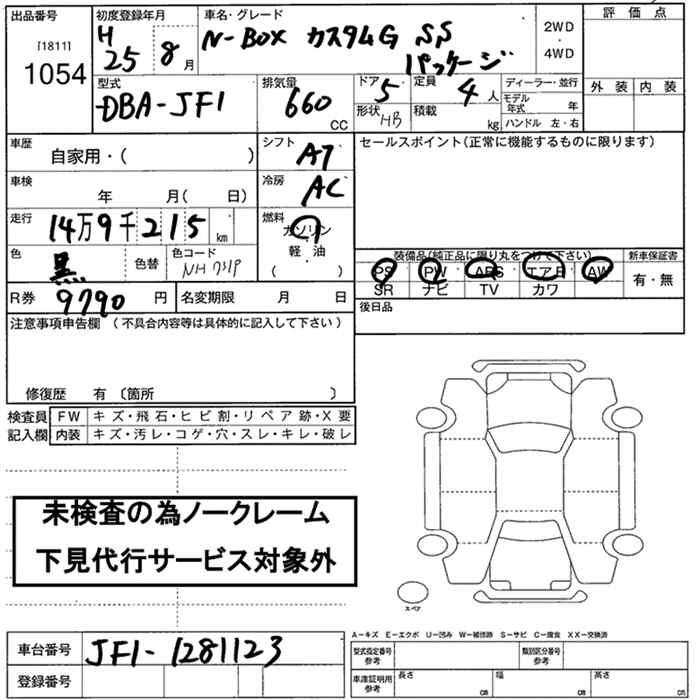 出品番号
[1811]
1054
初度登録年月
H
25 8 月
車名・グレード
N-BOX カスタムG SS
パッケージ
2WD
・
4WD
評価点
外装 内装
型式
DBA-JF1
排気量
660
CC
ドア 5
定員 4 人
形状 HB
積載 kg
ディーラー・並行
モデル年式 年
ハンドル 左・右
車歴
自家用・( )
シフト AT
セールスポイント(正常に機能するものに限ります)
車検
年 月( 日)
冷房 AC
走行
14万9千215 km
燃料
ガソリン
軽・油
( )
色
黒
色替
色コード
NH731P
装備品(純正品に限り丸をつけて下さい)
PS PW ABS エアB AW
SR ナビ TV カワ
新車保証書
有・無
R券 9790 円
名変期限 月 日
後日品
注意事項申告欄 (不具合内容等は具体的に記入して下さい)
修復歴 有 〔箇所 〕
検査員
記入欄
FW キズ・飛石・ヒビ割・リペア跡・X要
内装 キズ・汚レ・コゲ・穴・スレ・キレ・破レ
未検査の為ノークレーム
下見代行サービス対象外
スペア
車台番号 JF1-1281123
登録番号
A-キズ E-エクボ U-凹み W-補修跡 S-サビ C-腐食 XX-交換済
型式指定番号
参考
類別区分番号
参考
車庫証明用
参考
長さ CM
幅 CM
高さ CM